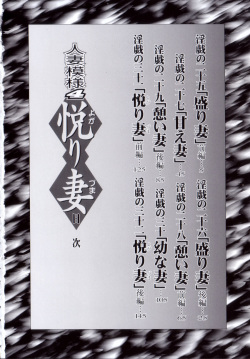 淫戯の二十五「盛り妻」前編…5
淫戯の二十六「盛り妻」後編…25
淫戯の二十七「甘え妻」45
淫戯の二十八「憩い妻」前編…65
淫戯の二十九「憩い妻」後編 85
淫戯の三十「幼な妻」105
淫戯の三十一「悦り妻」前編 125
淫戯の三十二「悦り妻」後編 145
人妻模様4
悦り妻
よが
つま
目次